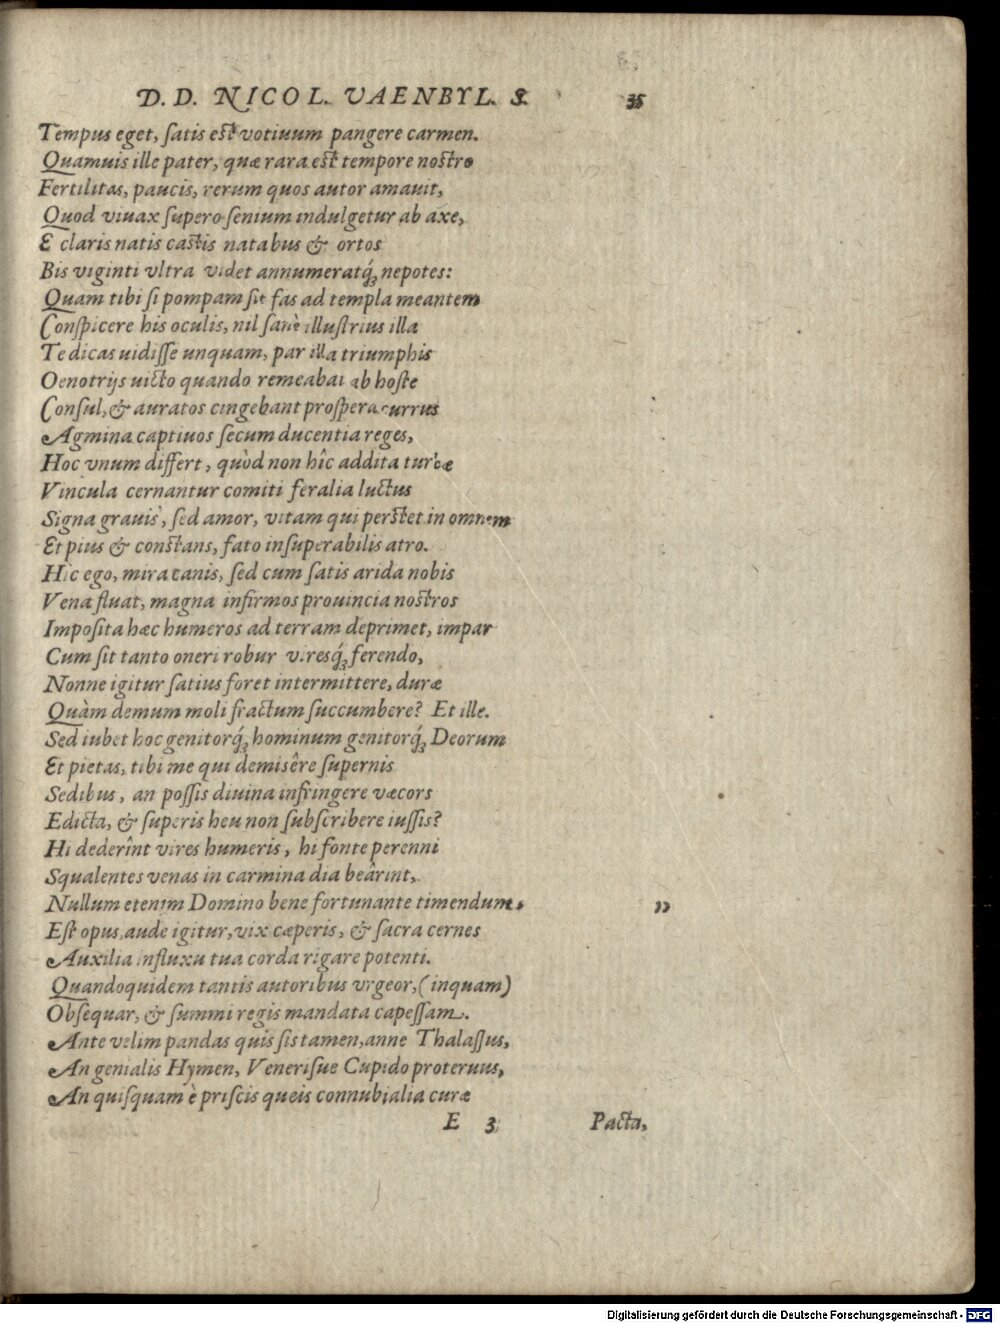 D. D. NICOL. VAENBYL. S. 35
Tempus eget, ſatis eſt votiuum pangere carmen.
Quamuis ille pater, quæ rara eſt tempore noſtro
Fertilitas, paucis, rerum quos autor amauit,
Quod viuax ſupero ſenium indulgetur ab axe,
E claris natis caſtis natabus & ortos
Bis viginti vltra videt annumeratq́ꝫ nepotes:
Quam tibi ſi pompam ſit fas ad templa meantem
Conſpicere his oculis, nil ſanè illuſtrius illa
Te dicas uidiſſe unquam, par illa triumphis
Oenotrijs uicto quando remeabat ab hoſte
Conſul, & auratos cingebant proſpera currus
Agmina captiuos ſecum ducentia reges,
Hoc vnum differt, quòd non hîc addita turbæ
Vincula cernantur comiti feralia luctus
Signa grauis, ſed amor, vitam qui perſtet in omnem
Et pius & conſtans, fato inſuperabilis atro.
Hic ego, mira canis, ſed cum ſatis arida nobis
Vena fluat, magna infirmos prouincia noſtros
Impoſita hæc humeros ad terram deprimet, impar
Cum ſit tanto oneri robur viresq́ꝫ ferendo,
Nonne igitur ſatius foret intermittere, duræ
Quàm demum moli fractum ſuccumbere? Et ille.
Sed iubet hoc genitorq́ꝫ hominum genitorq́ꝫ Deorum
Et pietas, tibi me qui demisêre ſupernis
Sedibus, an poſſis diuina infringere væcors
Edicta, & ſuperis heu non ſubſcribere iuſſis?
Hi dederînt vires humeris, hi fonte perenni
Squalentes venas in carmina dia beârint,
Nullum etenim Domino bene fortunante timendum, ,,
Eſt opus, aude igitur, vix cæperis, & ſacra cernes
Auxilia influxu tua corda rigare potenti.
Quandoquidem tantis autoribus vrgeor, (inquam)
Obſequar, & ſummi regis mandata capeſſam.
Ante velim pandas quis ſis tamen, anne Thalaſſus,
An genialis Hymen, Veneriſue Cupido proteruus,
An quiſquam è priſcis queis connubialia curæ
E 3 Pacta,
Digitalisierung gefördert durch die Deutsche Forschungsgemeinschaft - DFG